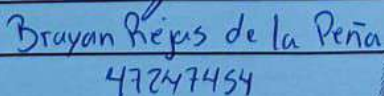 Brayan Rejas de la Peña
47247454